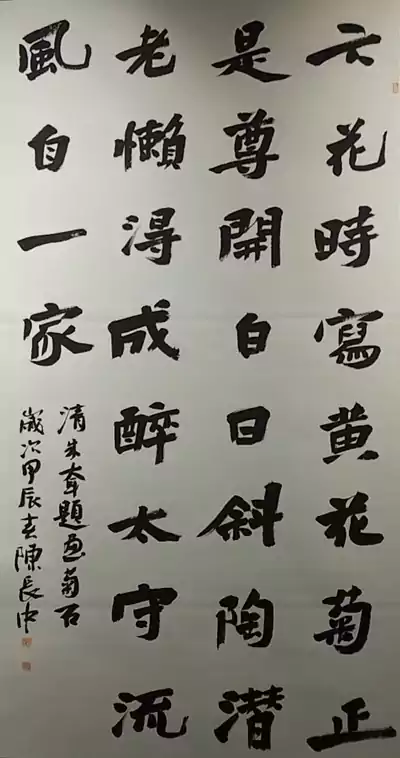 六花時寫黄花菊正
是尊開白日斜陶潜
老懶淂成醉太守流
風自一家
清朱耷題画菊石
歲次甲辰陳長中